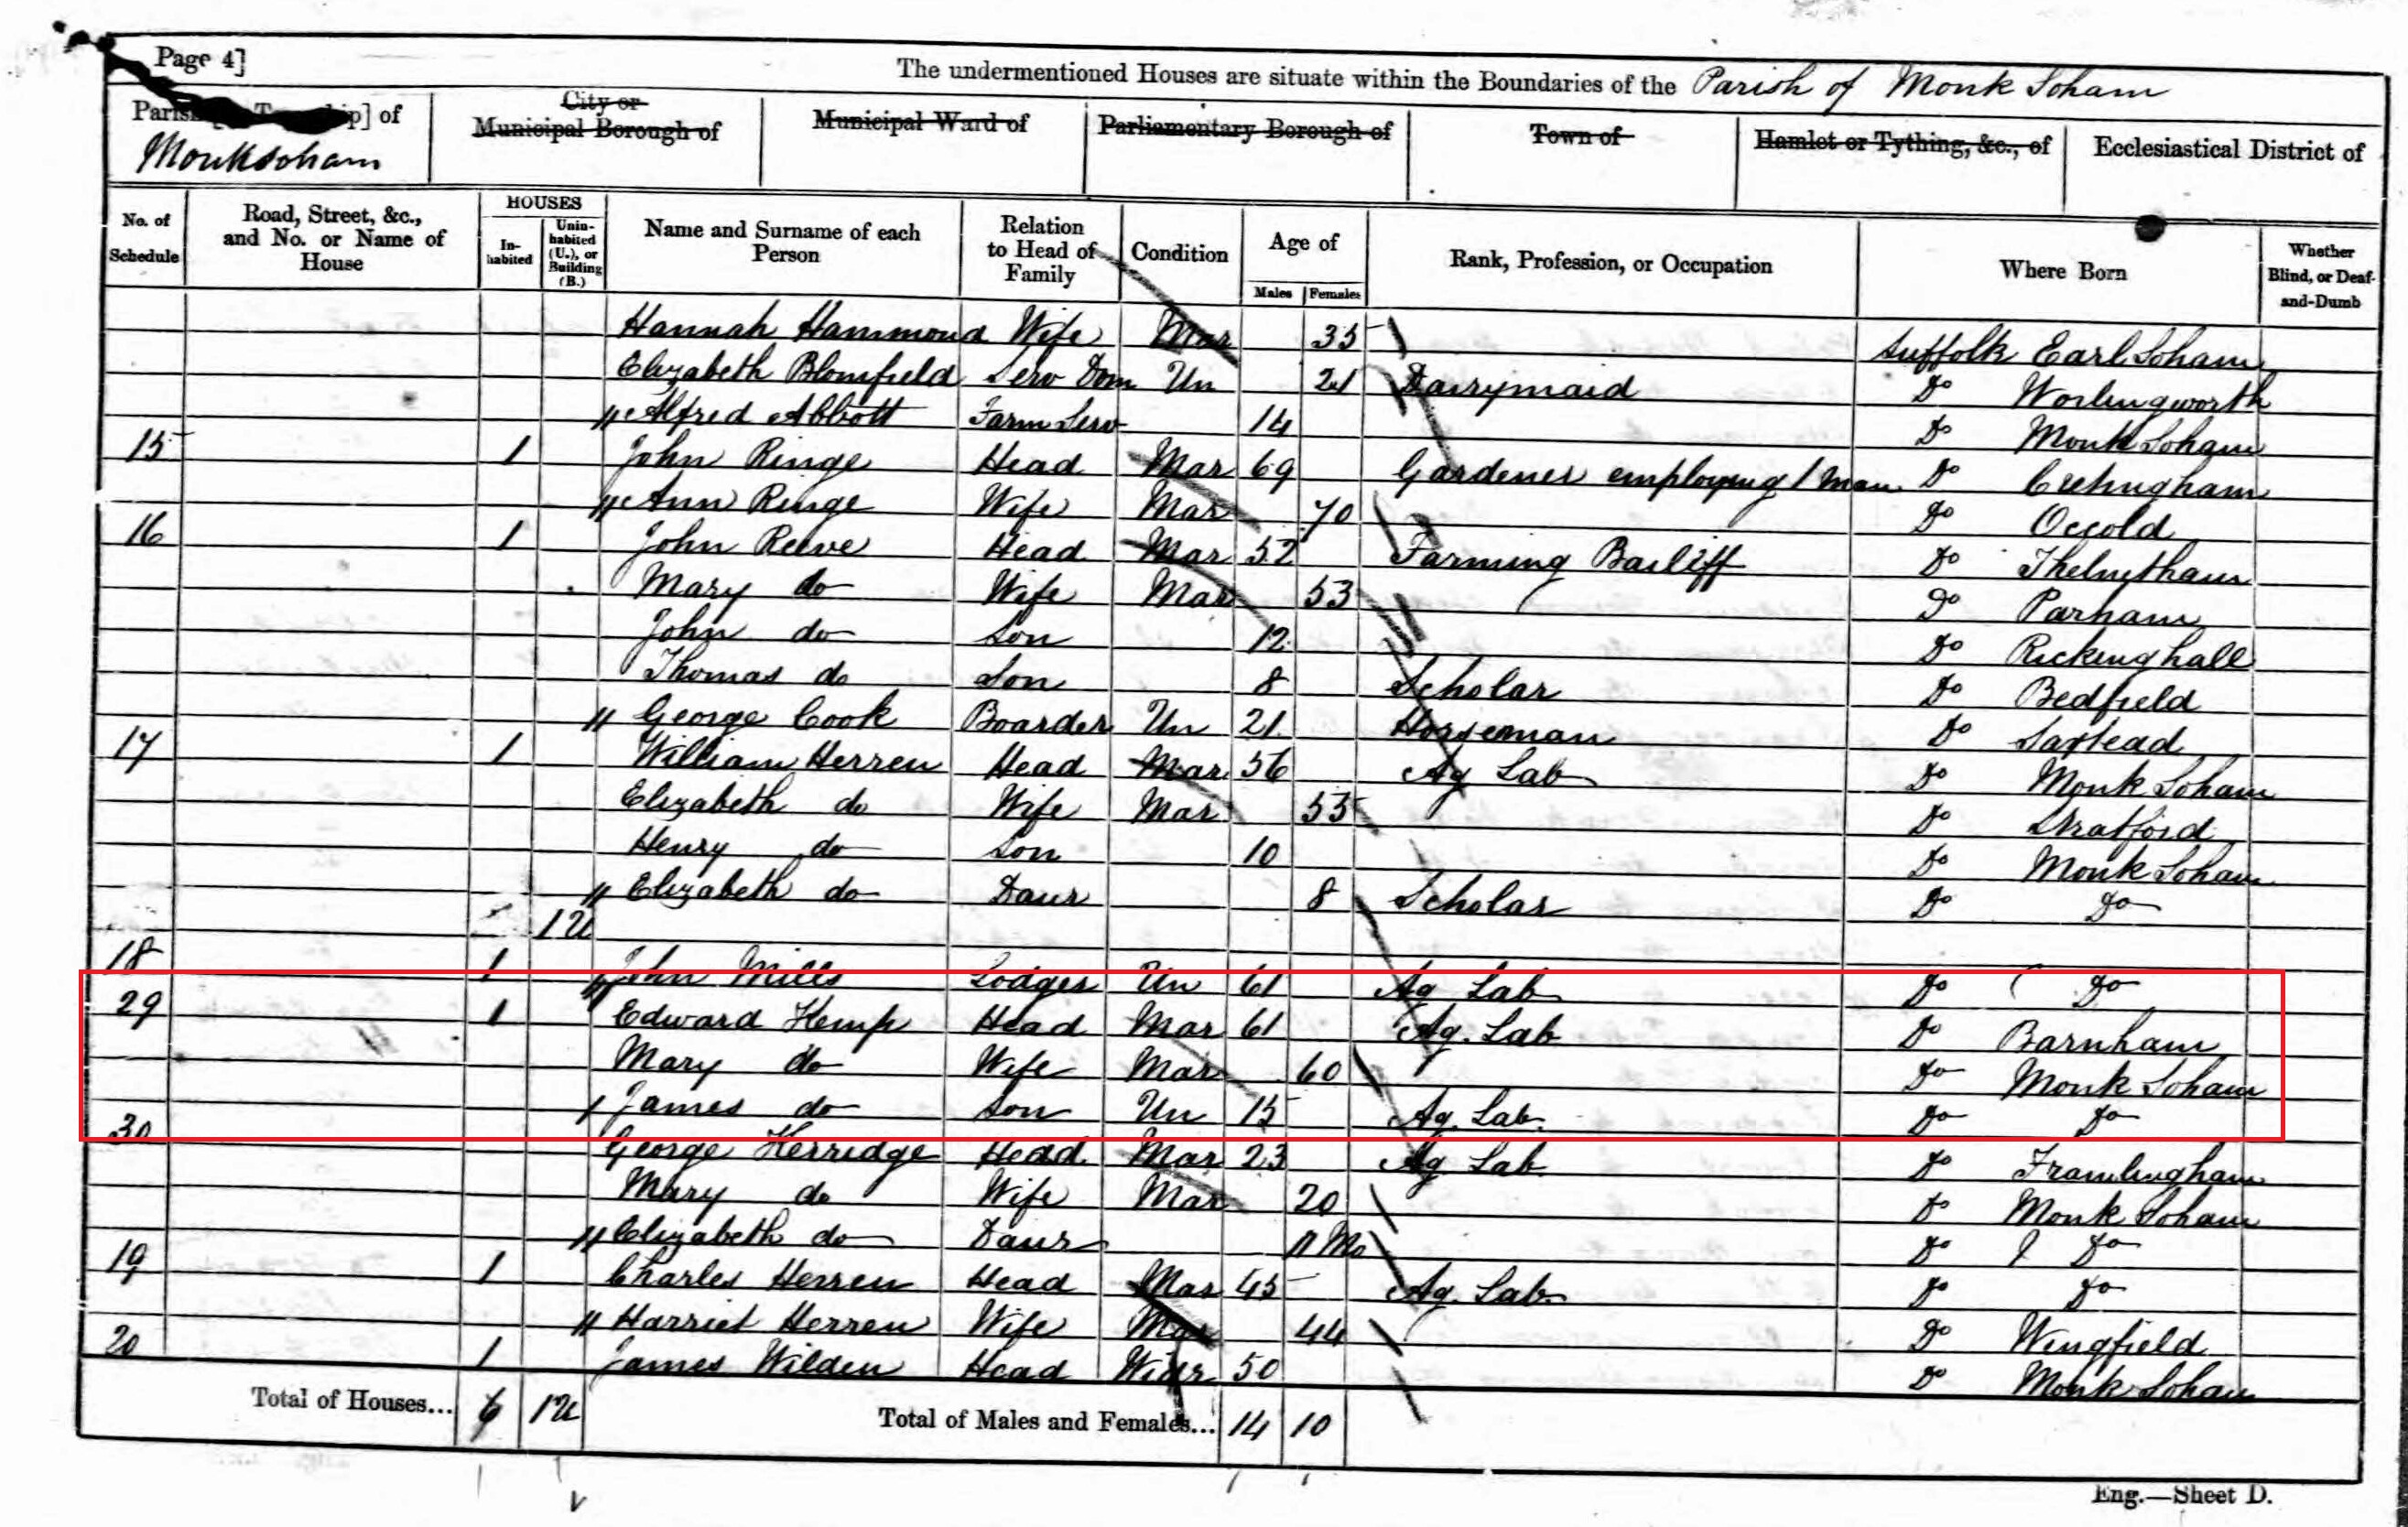 Page 4]
The undermentioned Houses are situate within the Boundaries of the Parish of Monk Soham
Parish of
Monksoham
City or
Municipal Borough of
Municipal Ward of
Parliamentary Borough of
Town of
Hamlet or Tything, &c., of
Ecclesiastical District of
No. of Schedule
Road, Street, &c., and No. or Name of House
HOUSES
In-habited
Unin-habited (U.), or Building (B.)
Name and Surname of each Person
Relation to Head of Family
Condition
Age of
Males Females
Rank, Profession, or Occupation
Where Born
Whether Blind, or Deaf-and-Dumb
Hannah Hammond Wife Mar 35 Suffolk Earl Soham
Elizabeth Blomfield Serv Dom Un 21 Dairymaid Do Worlingworth
" Alfred Abbott Farm Serv 14 Do Monk Soham
15 1 John Ringe Head Mar 69 Gardener employing 1 Man Do Cretingham
" Ann Ringe Wife Mar 70 Do Occold
16 1 John Reeve Head Mar 52 Farming Bailiff Do Thelnetham
Mary do Wife Mar 53 Do Parham
John do Son 12 Do Rickinghall
Thomas do Son 8 Scholar Do Bedfield
" George Cook Boarder Un 21 Horseman Do Saxtead
17 1 William Herren Head Mar 56 Ag Lab Do Monk Soham
Elizabeth do Wife Mar 55 Do Stratford
Henry do Son 10 Do Monk Soham
" Elizabeth do Daur 8 Scholar Do Do
1U
18 1 " John Mills Lodger Un 61 Ag Lab Do Do
29 1 Edward Kemp Head Mar 61 Ag. Lab Do Barnham
Mary do Wife Mar 60 Do Monk Soham
James do Son Un 15 Ag. Lab. Do Do
30 George Herridge Head Mar 23 Ag Lab Do Framlingham
Mary do Wife Mar 20 Do Monk Soham
" Elizabeth do Daur 11 Mo Do Do
19 1 Charles Herren Head Mar 45 Ag. Lab. Do Do
" Harriet Herren Wife Mar 44 Do Wingfield
20 1 James Wilden Head Widr 50 Do Monk Soham
Total of Houses... 6 1U Total of Males and Females... 14 10
Eng.—Sheet D.